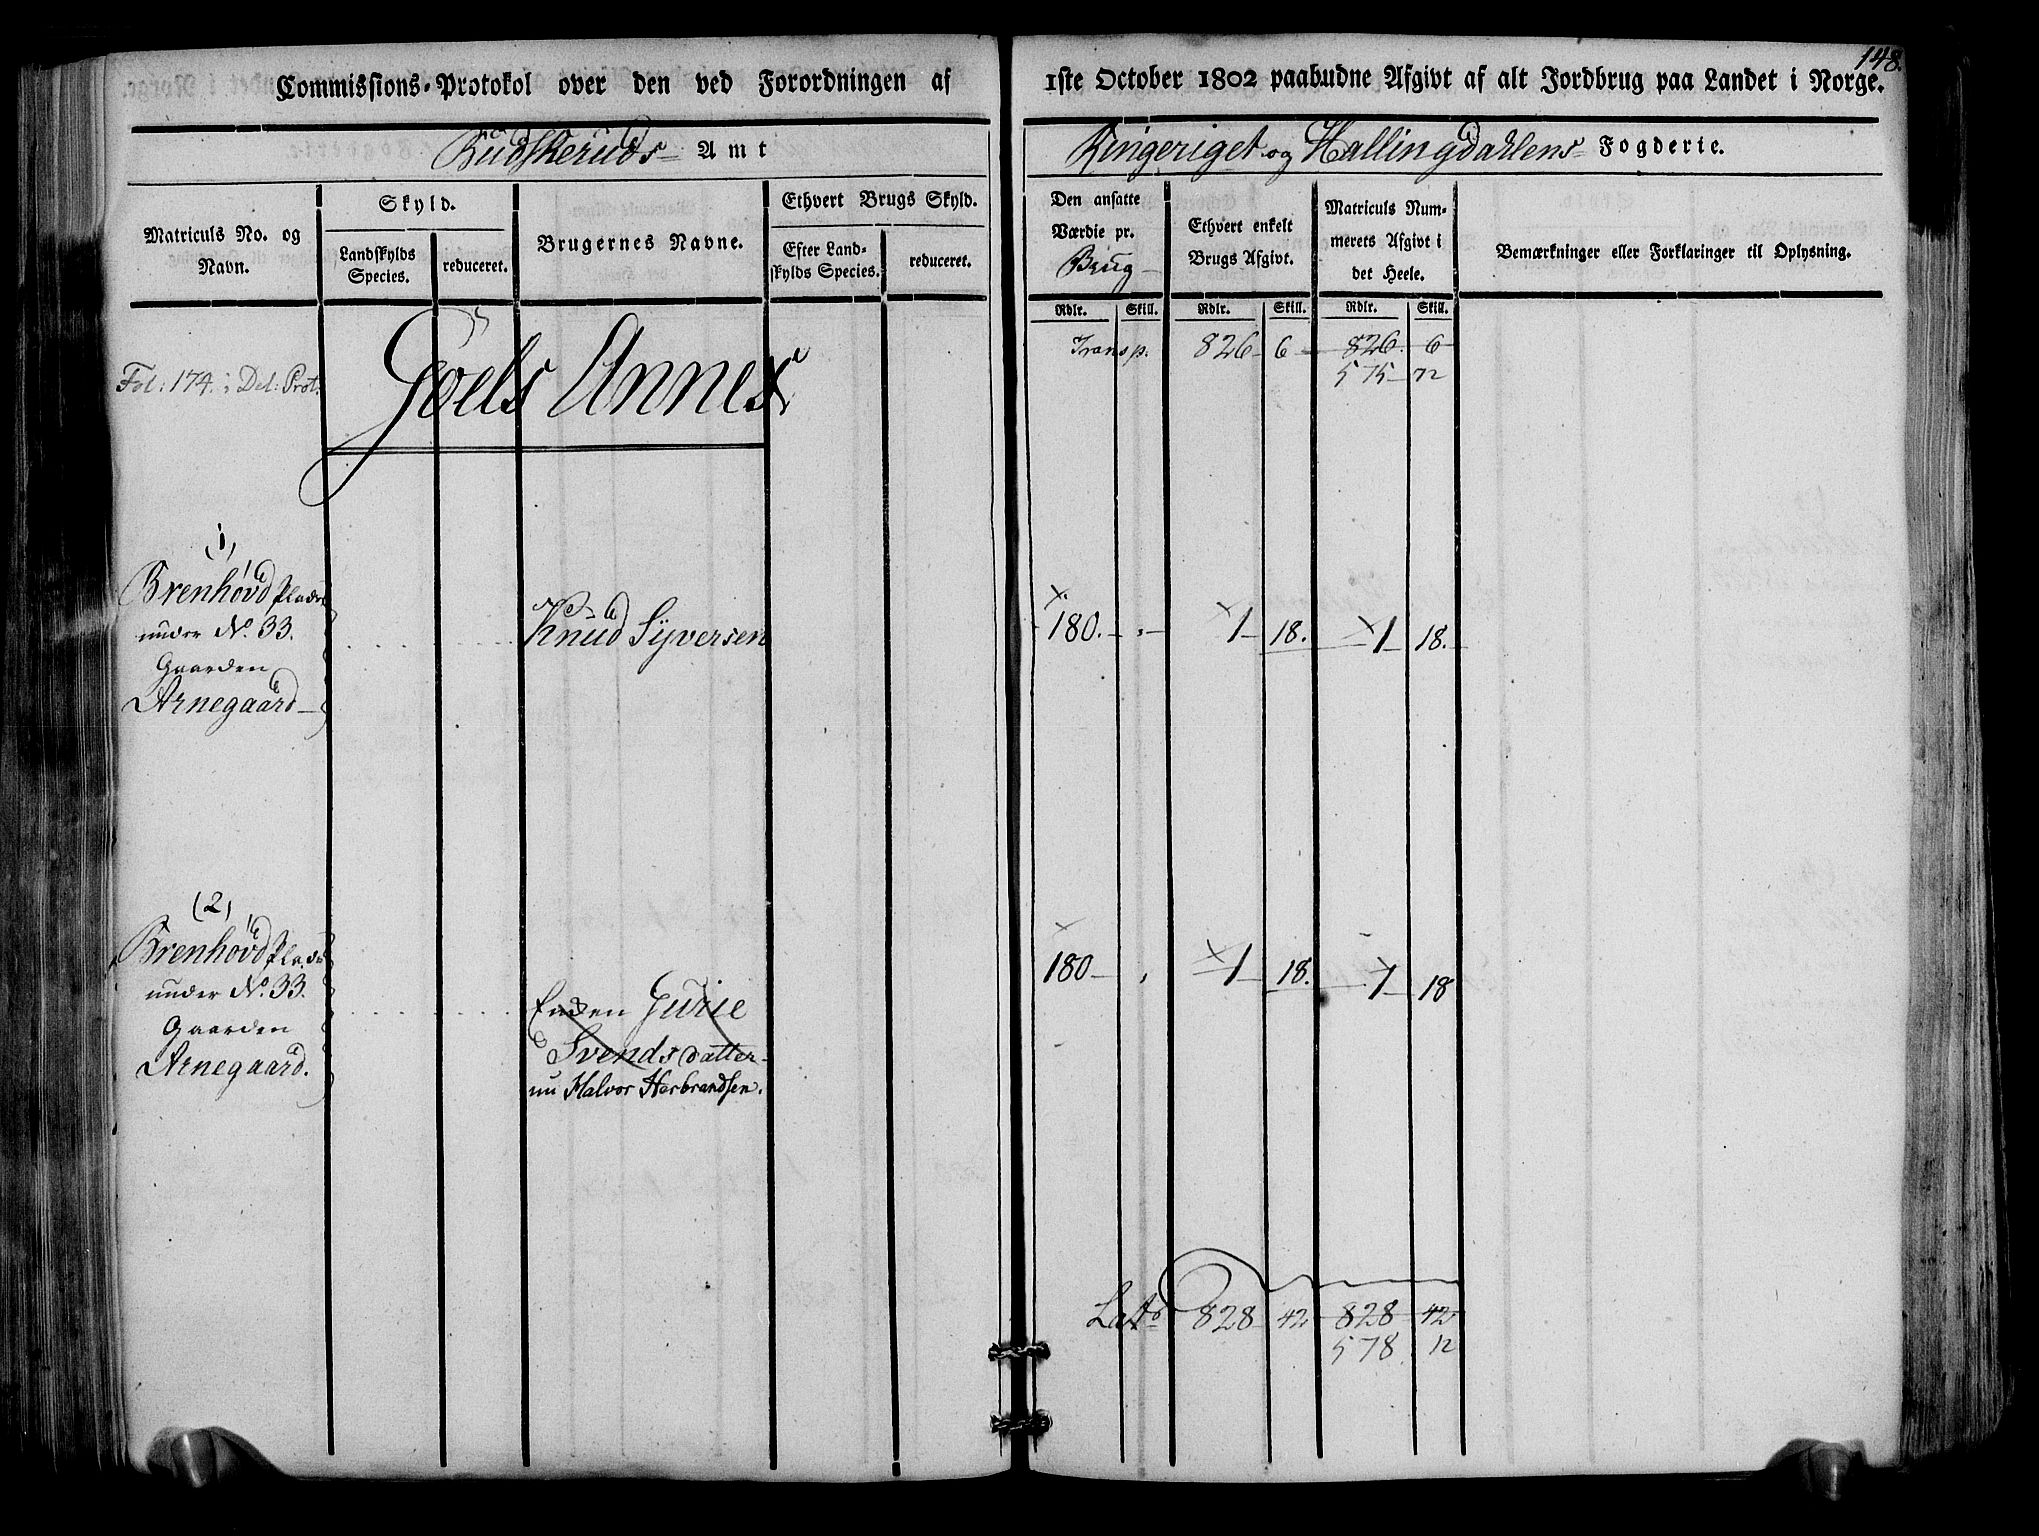 148.
Commissions-Protokol over den ved Forordningen af 1ste October 1802 paabudne Afgivt af alt Jordbrug paa Landet i Norge.
Budskeruds Amt
Ringeriget og Hallingdahlens Fogderie.
Matriculs No. og Navn.
Skyld.
Landskylds Species.
reduceret.
Brugernes Navne.
Ethvert Brugs Skyld.
Efter Landskylds Species.
reduceret.
Den ansatte Værdie pr. Brug
Ethvert enkelt Brugs Afgivt.
Matriculs Nummerets Afgivt i det Heele.
Bemærkninger eller Forklaringer til Oplysning.
Rdlr. Skill. Rdlr. Skill. Rdlr. Skill.
Transp. 826 6 826 6
575 72
Fol: 174. i Del: Prot.
Goels Annex
(1)
Brenhovd Plads
under No. 33.
Gaarden
Arnegaard
Knud Syversen
180. 1 18. 1 18.
(2)
Brenhovd Plads
under No. 33.
Gaarden
Arnegaard.
Enken Gurie
Svendsdatter
nu Halvor Herbrandsen.
180 1 18. 1 18
Lat. 828 42 828 42
578 12